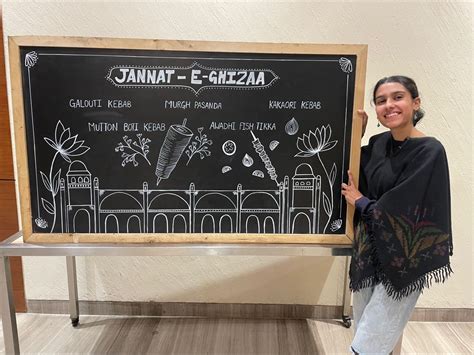 JANNAT - E - GHIZAA
GALOUTI KEBAB MURGH PASANDA KAKAORI KEBAB
MUTTON BOTI KEBAB AWADHI FISH TIKKA